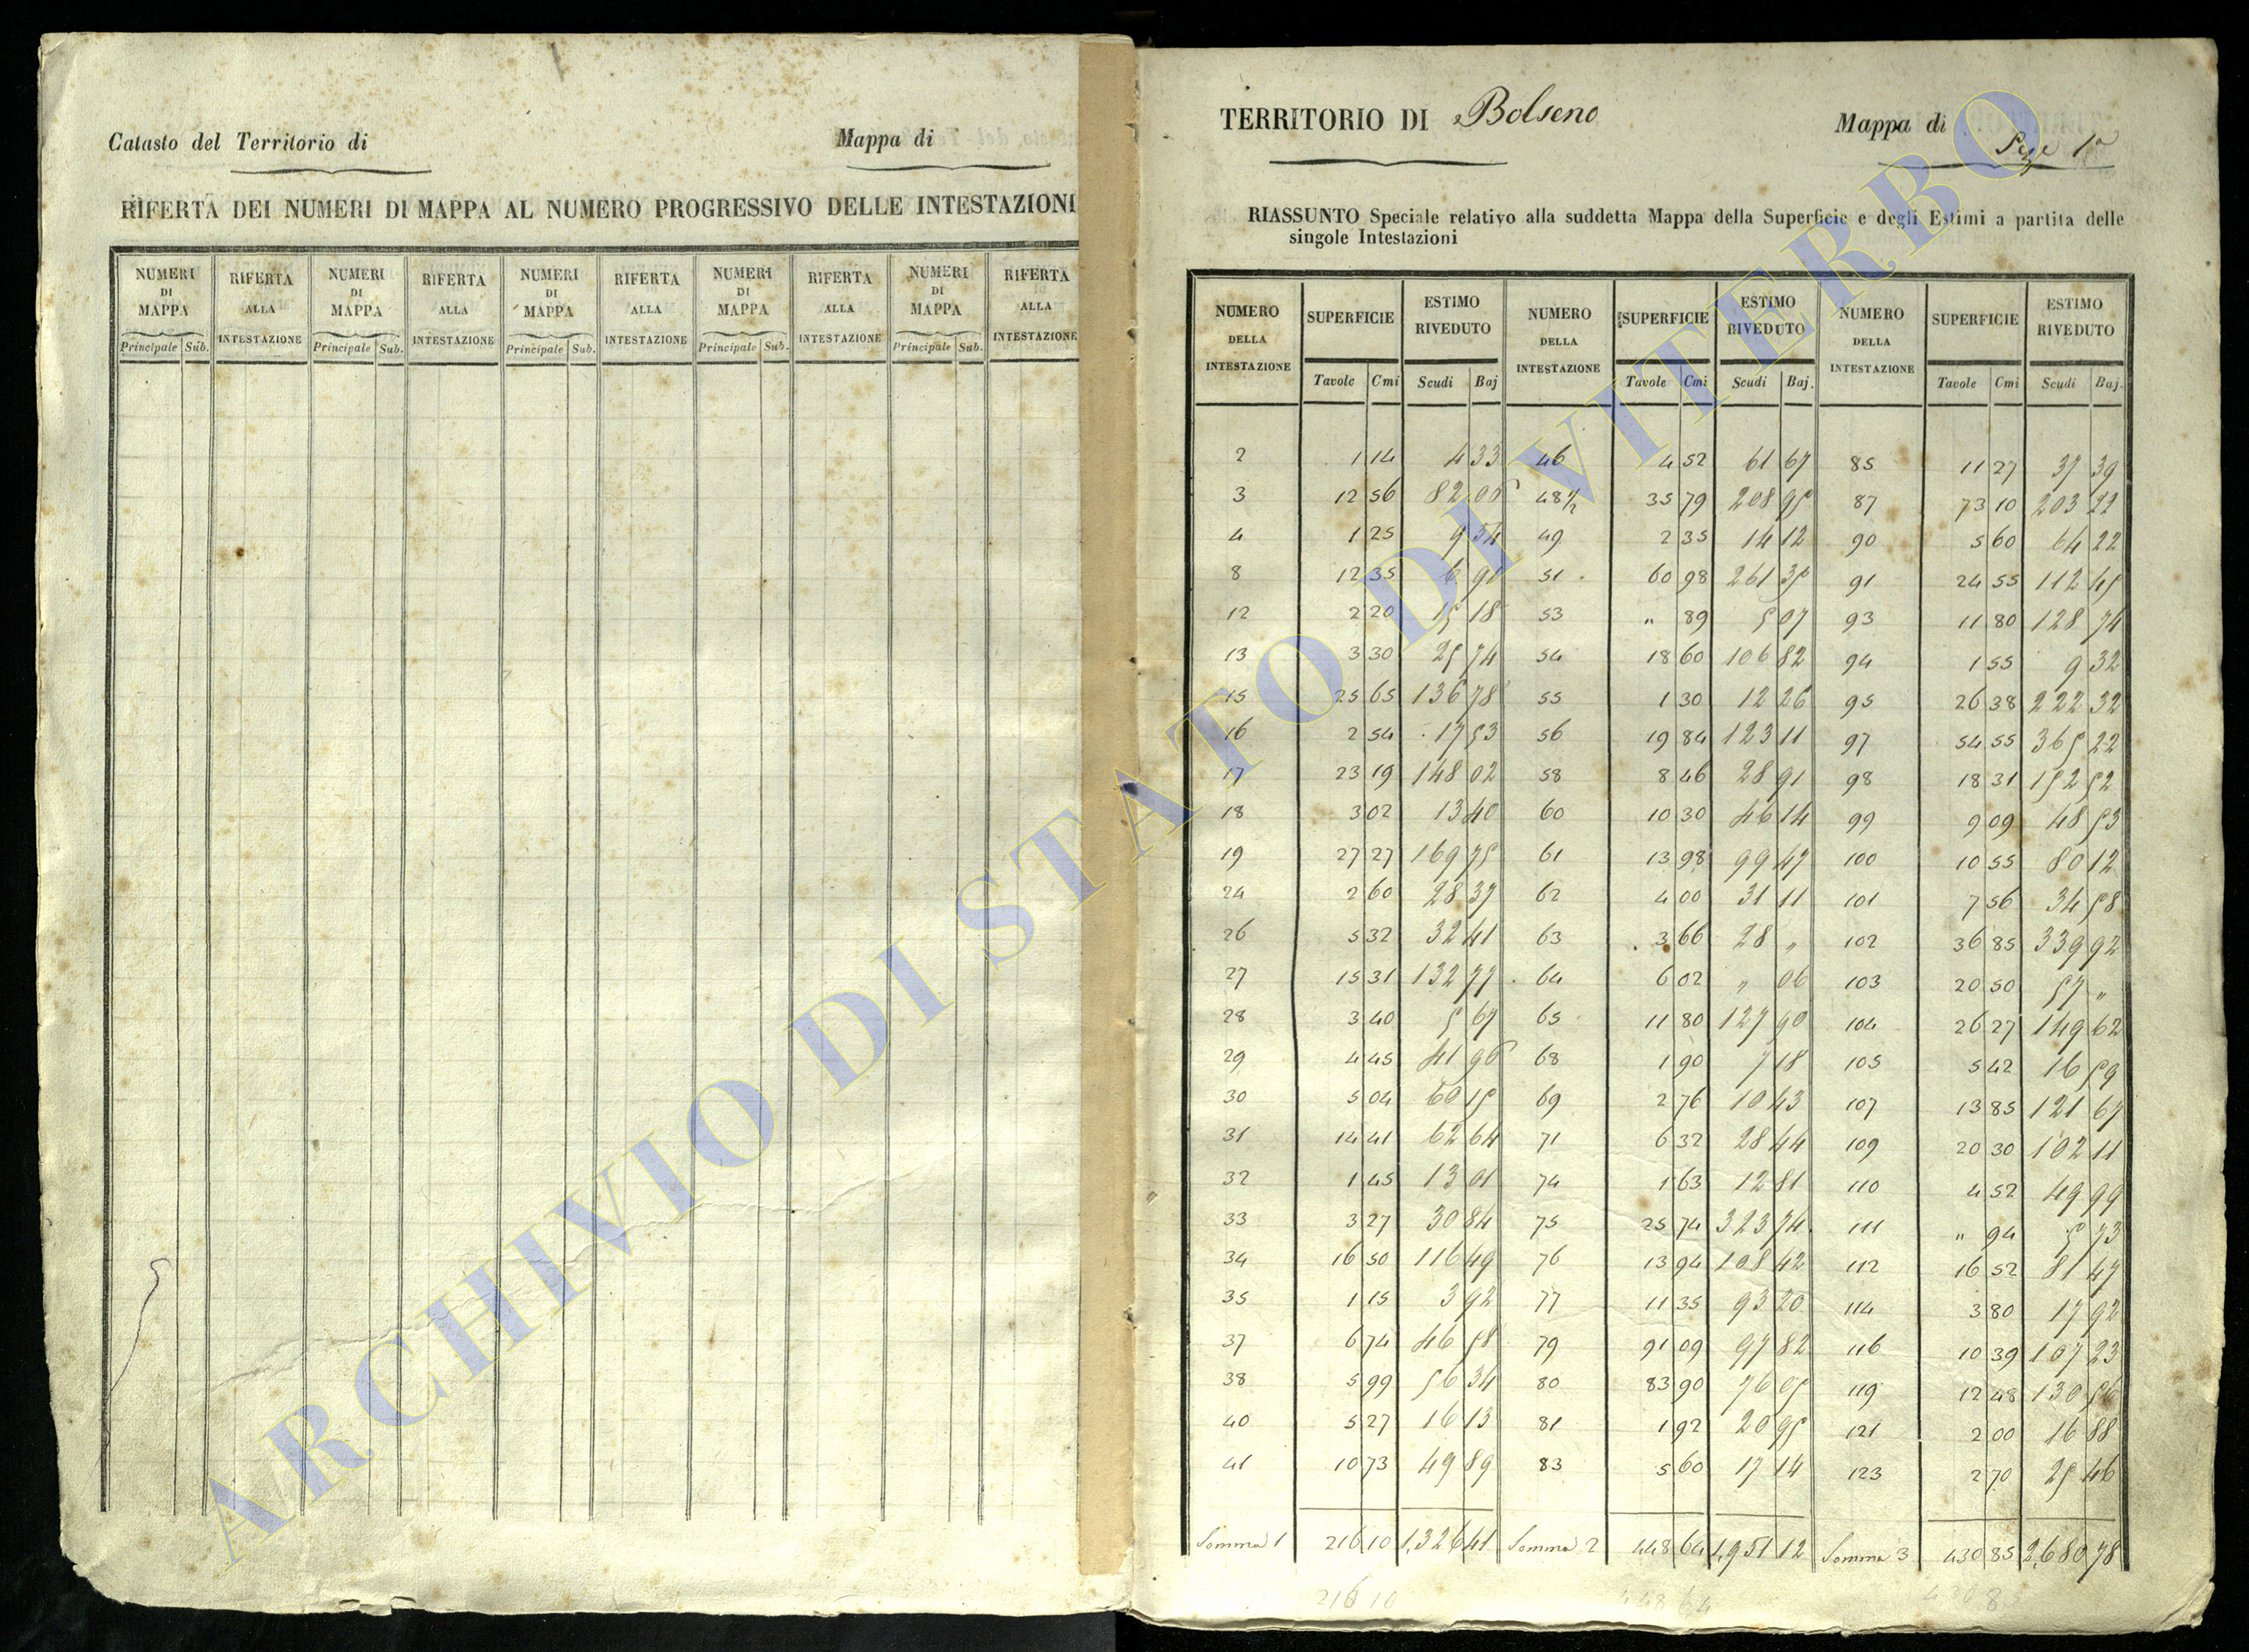 Catasto del Territorio di
Mappa di
RIFERTA DEI NUMERI DI MAPPA AL NUMERO PROGRESSIVO DELLE INTESTAZIONI
NUMERI DI MAPPA RIFERTA ALLA INTESTAZIONE NUMERI DI MAPPA RIFERTA ALLA INTESTAZIONE NUMERI DI MAPPA RIFERTA ALLA INTESTAZIONE NUMERI DI MAPPA RIFERTA ALLA INTESTAZIONE NUMERI DI MAPPA RIFERTA ALLA INTESTAZIONE
Principale Sub. Principale Sub. Principale Sub. Principale Sub. Principale Sub.
TERRITORIO DI Bolseno
Mappa di
1a
RIASSUNTO Speciale relativo alla suddetta Mappa della Superficie e degli Estimi a partita delle
singole Intestazioni
NUMERO DELLA INTESTAZIONE SUPERFICIE ESTIMO RIVEDUTO NUMERO DELLA INTESTAZIONE SUPERFICIE ESTIMO RIVEDUTO NUMERO DELLA INTESTAZIONE SUPERFICIE ESTIMO RIVEDUTO
Tavole Cmi Scudi Baj Tavole Cmi Scudi Baj. Tavole Cmi Scudi Baj.
2 1 14 4 33 46 4 52 61 67 85 11 27 37 39
3 12 56 82 06 48 1/2 35 79 208 95 87 73 10 203 22
4 1 25 9 54 49 2 35 14 12 90 5 60 64 22
8 12 35 6 91 51 60 98 261 35 91 24 55 112 45
12 2 20 15 18 53 " 89 5 07 93 11 80 128 74
13 3 30 25 74 54 18 60 106 82 94 1 55 9 32
15 25 65 136 78 55 1 30 12 26 95 26 38 222 32
16 2 54 17 53 56 19 84 123 11 97 54 55 365 22
17 23 19 148 02 58 8 46 28 91 98 18 31 152 52
18 3 02 13 40 60 10 30 46 14 99 9 09 48 53
19 27 27 169 75 61 13 98 99 47 100 10 55 80 12
24 2 60 28 37 62 4 00 31 11 101 7 56 34 58
26 5 32 32 41 63 3 66 28 " 102 36 85 339 92
27 15 31 132 77 64 6 02 " 06 103 20 50 57 "
28 3 40 5 67 65 11 80 127 90 104 26 27 149 62
29 4 45 41 96 68 1 90 7 18 105 5 42 16 59
30 5 04 60 15 69 2 76 10 43 107 13 85 121 67
31 14 41 62 64 71 6 32 28 44 109 20 30 102 11
32 1 45 13 01 74 1 63 12 81 110 4 52 49 99
33 3 27 30 84 75 25 74 323 74 111 " 94 5 73
34 16 50 116 49 76 13 94 108 42 112 16 52 81 47
35 1 15 3 92 77 11 35 93 20 114 3 80 17 92
37 6 74 46 58 79 91 09 97 82 116 10 39 107 23
38 5 99 56 34 80 83 90 76 05 119 12 48 130 56
40 5 27 16 13 81 1 92 20 95 121 2 00 16 88
41 10 73 49 89 83 5 60 17 14 123 2 70 25 46
Somma 1 216 10 1,326 41 Somma 2 448 64 1,951 12 Somma 3 430 85 2,680 78
216 10 448 64
ARCHIVIO DI STATO DI VITERBO